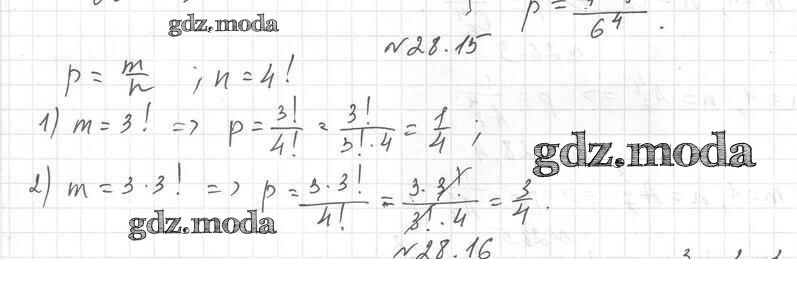 gdz.moda
p = .../6⁴ .
№28.15
p = m/n ; n = 4!
1) m = 3! => p = 3!/4! = 3!/(3!·4) = 1/4 ;
gdz.moda
2) m = 3·3! => p = 3·3!/4! = 3·3!/(3!·4) = 3/4 .
gdz.moda
№28.16